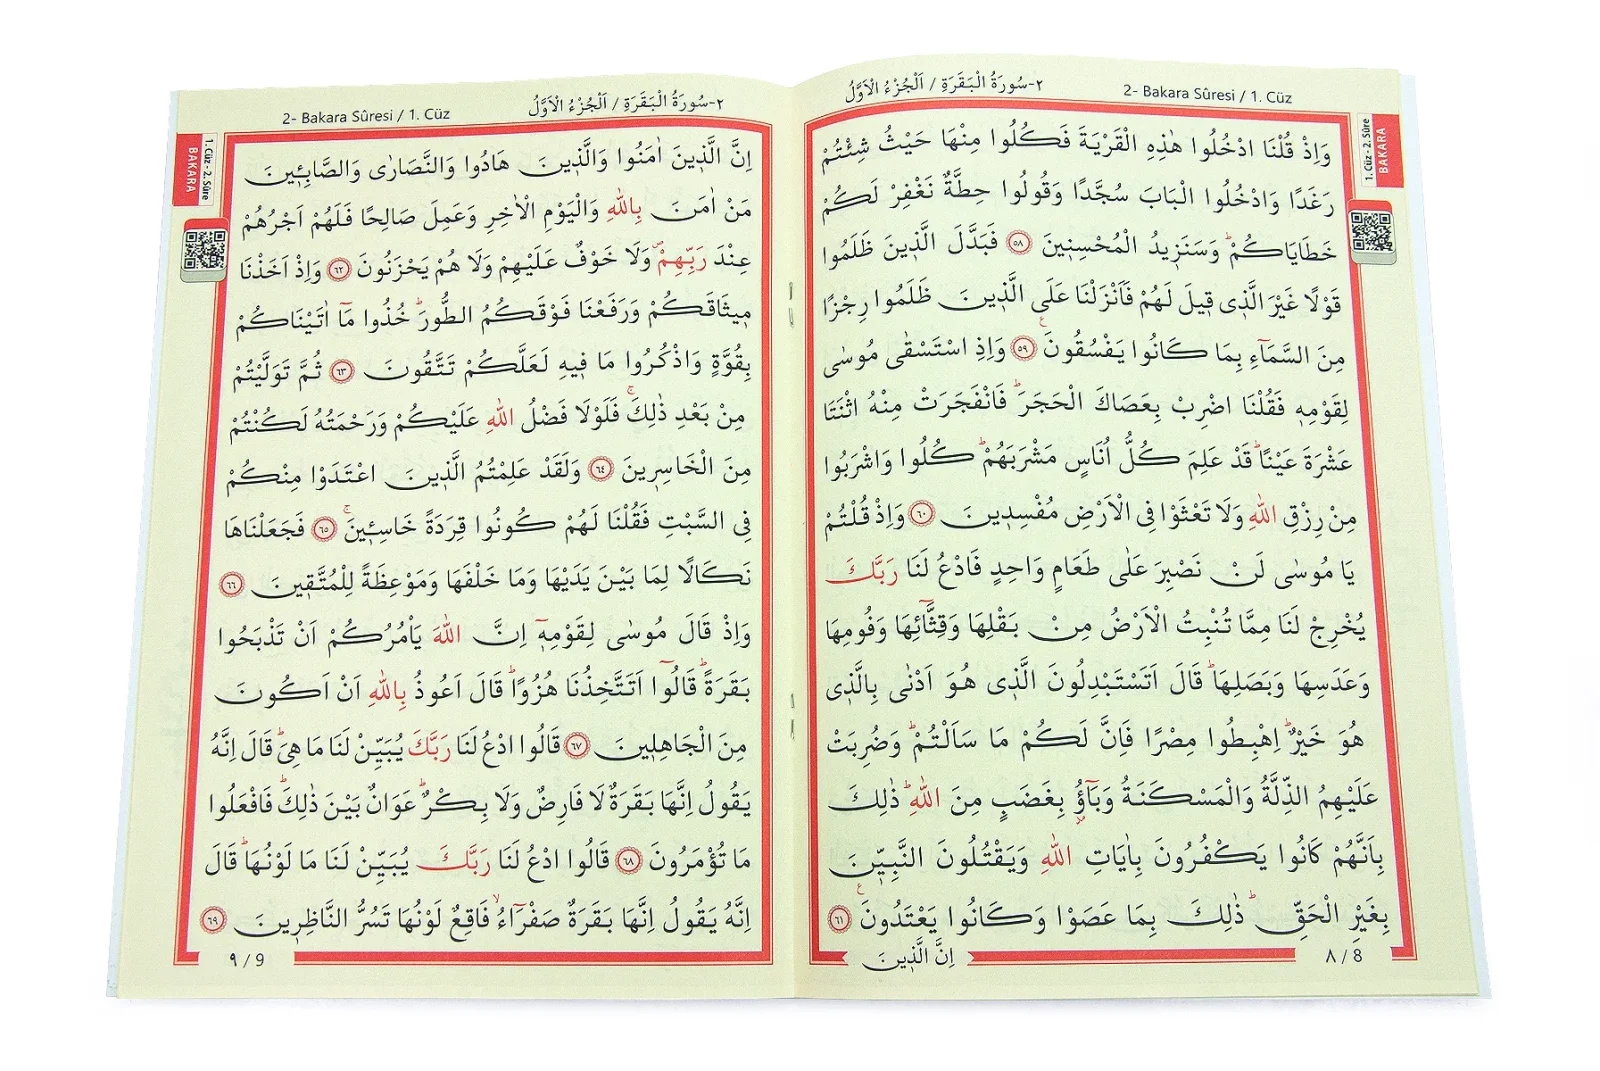 ٢-سُورَةُ الْبَقَرَةِ / اَلْجُزْءُ الْاَوَّلُ
2- Bakara Sûresi / 1. Cüz
1.Cüz - 2. Sûre
BAKARA
وَاِذْ قُلْنَا ادْخُلُوا هٰذِهِ الْقَرْيَةَ فَكُلُوا مِنْهَا حَيْثُ شِئْتُمْ
رَغَدًا وَادْخُلُوا الْبَابَ سُجَّدًا وَقُولُوا حِطَّةٌ نَغْفِرْ لَكُمْ
خَطَايَاكُمْۜ وَسَنَز۪يدُ الْمُحْسِن۪ينَ ﴿٥٨﴾ فَبَدَّلَ الَّذ۪ينَ ظَلَمُوا
قَوْلًا غَيْرَ الَّذ۪ي ق۪يلَ لَهُمْ فَاَنْزَلْنَا عَلَى الَّذ۪ينَ ظَلَمُوا رِجْزًا
مِنَ السَّمَٓاءِ بِمَا كَانُوا يَفْسُقُونَ۟ ﴿٥٩﴾ وَاِذِ اسْتَسْقٰى مُوسٰى
لِقَوْمِه۪ فَقُلْنَا اضْرِبْ بِعَصَاكَ الْحَجَرَۜ فَانْفَجَرَتْ مِنْهُ اثْنَتَا
عَشْرَةَ عَيْنًاۜ قَدْ عَلِمَ كُلُّ اُنَاسٍ مَشْرَبَهُمْۜ كُلُوا وَاشْرَبُوا
مِنْ رِزْقِ اللّٰهِ وَلَا تَعْثَوْا فِي الْاَرْضِ مُفْسِد۪ينَ ﴿٦٠﴾ وَاِذْ قُلْتُمْ
يَا مُوسٰى لَنْ نَصْبِرَ عَلٰى طَعَامٍ وَاحِدٍ فَادْعُ لَنَا رَبَّكَ
يُخْرِجْ لَنَا مِمَّا تُنْبِتُ الْاَرْضُ مِنْ بَقْلِهَا وَقِثَّٓائِهَا وَفُومِهَا
وَعَدَسِهَا وَبَصَلِهَاۜ قَالَ اَتَسْتَبْدِلُونَ الَّذ۪ي هُوَ اَدْنٰى بِالَّذ۪ي
هُوَ خَيْرٌۜ اِهْبِطُوا مِصْرًا فَاِنَّ لَكُمْ مَا سَاَلْتُمْۜ وَضُرِبَتْ
عَلَيْهِمُ الذِّلَّةُ وَالْمَسْكَنَةُ وَبَٓاؤُ۫ بِغَضَبٍ مِنَ اللّٰهِۜ ذٰلِكَ
بِاَنَّهُمْ كَانُوا يَكْفُرُونَ بِاٰيَاتِ اللّٰهِ وَيَقْتُلُونَ النَّبِيّ۪نَ
بِغَيْرِ الْحَقِّۜ ذٰلِكَ بِمَا عَصَوْا وَكَانُوا يَعْتَدُونَ۟ ﴿٦١﴾
اِنَّ الَّذ۪ينَ
٨ / 8
2- Bakara Sûresi / 1. Cüz
٢-سُورَةُ الْبَقَرَةِ / اَلْجُزْءُ الْاَوَّلُ
1.Cüz - 2. Sûre
BAKARA
اِنَّ الَّذ۪ينَ اٰمَنُوا وَالَّذ۪ينَ هَادُوا وَالنَّصَارٰى وَالصَّابِـ۪ٔينَ
مَنْ اٰمَنَ بِاللّٰهِ وَالْيَوْمِ الْاٰخِرِ وَعَمِلَ صَالِحًا فَلَهُمْ اَجْرُهُمْ
عِنْدَ رَبِّهِمْۖ وَلَا خَوْفٌ عَلَيْهِمْ وَلَا هُمْ يَحْزَنُونَ ﴿٦٢﴾ وَاِذْ اَخَذْنَا
م۪يثَاقَكُمْ وَرَفَعْنَا فَوْقَكُمُ الطُّورَۜ خُذُوا مَٓا اٰتَيْنَاكُمْ
بِقُوَّةٍ وَاذْكُرُوا مَا ف۪يهِ لَعَلَّكُمْ تَتَّقُونَ ﴿٦٣﴾ ثُمَّ تَوَلَّيْتُمْ
مِنْ بَعْدِ ذٰلِكَۚ فَلَوْلَا فَضْلُ اللّٰهِ عَلَيْكُمْ وَرَحْمَتُهُ لَكُنْتُمْ
مِنَ الْخَاسِر۪ينَ ﴿٦٤﴾ وَلَقَدْ عَلِمْتُمُ الَّذ۪ينَ اعْتَدَوْا مِنْكُمْ
فِي السَّبْتِ فَقُلْنَا لَهُمْ كُونُوا قِرَدَةً خَاسِـ۪ٔينَۚ ﴿٦٥﴾ فَجَعَلْنَاهَا
نَكَالًا لِمَا بَيْنَ يَدَيْهَا وَمَا خَلْفَهَا وَمَوْعِظَةً لِلْمُتَّق۪ينَ ﴿٦٦﴾
وَاِذْ قَالَ مُوسٰى لِقَوْمِه۪ٓ اِنَّ اللّٰهَ يَأْمُرُكُمْ اَنْ تَذْبَحُوا
بَقَرَةًۜ قَالُٓوا اَتَتَّخِذُنَا هُزُوًاۜ قَالَ اَعُوذُ بِاللّٰهِ اَنْ اَكُونَ
مِنَ الْجَاهِل۪ينَ ﴿٦٧﴾ قَالُوا ادْعُ لَنَا رَبَّكَ يُبَيِّنْ لَنَا مَا هِيَۜ قَالَ اِنَّهُ
يَقُولُ اِنَّهَا بَقَرَةٌ لَا فَارِضٌ وَلَا بِكْرٌۜ عَوَانٌ بَيْنَ ذٰلِكَۜ فَافْعَلُوا
مَا تُؤْمَرُونَ ﴿٦٨﴾ قَالُوا ادْعُ لَنَا رَبَّكَ يُبَيِّنْ لَنَا مَا لَوْنُهَاۜ قَالَ
اِنَّهُ يَقُولُ اِنَّهَا بَقَرَةٌ صَفْرَٓاءُۙ فَاقِعٌ لَوْنُهَا تَسُرُّ النَّاظِر۪ينَ ﴿٦٩﴾
٩ / 9